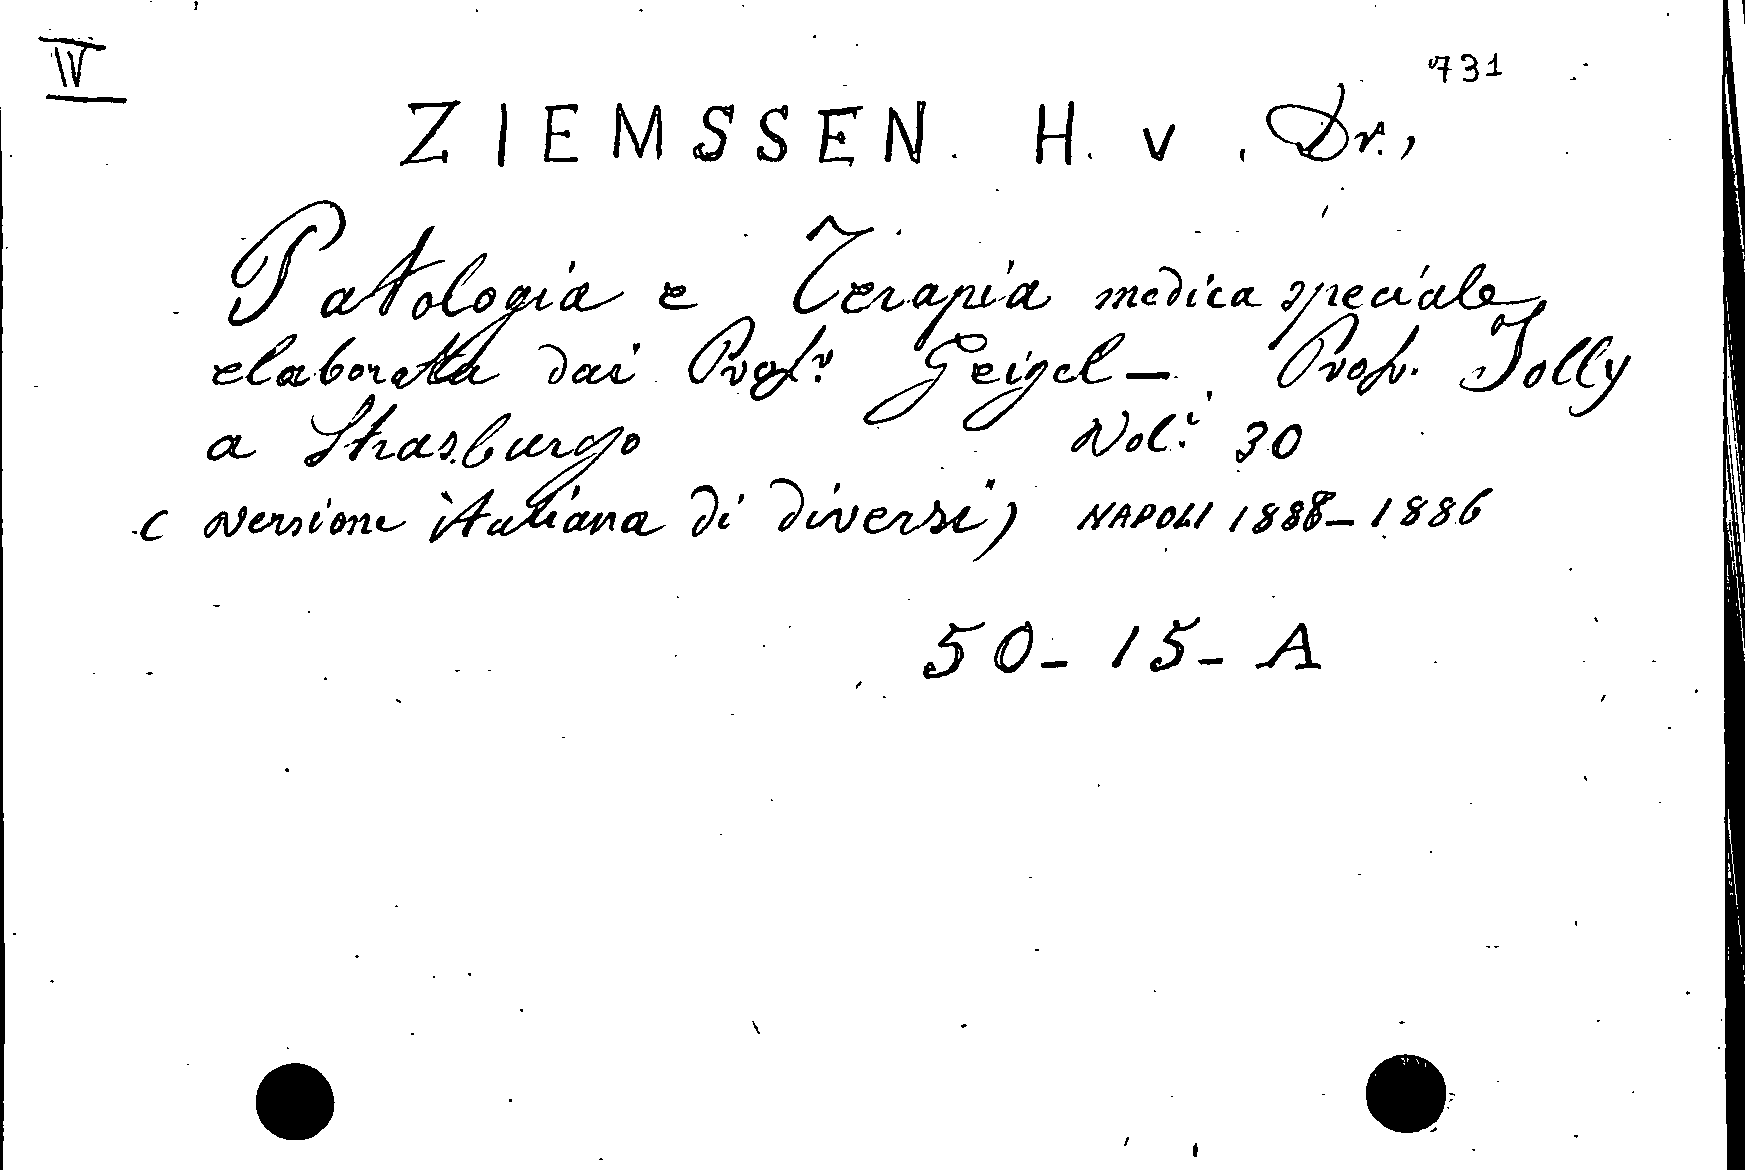 IV
731
ZIEMSSEN. H. v. Dr.,
Patologia e Terapia medica speciale
elaborata dai Profri Geigel — Profr. Jolly
a Strasburgo Voli 30
(versione italiana di diversi) NAPOLI 1888–1886
50 - 15 - A